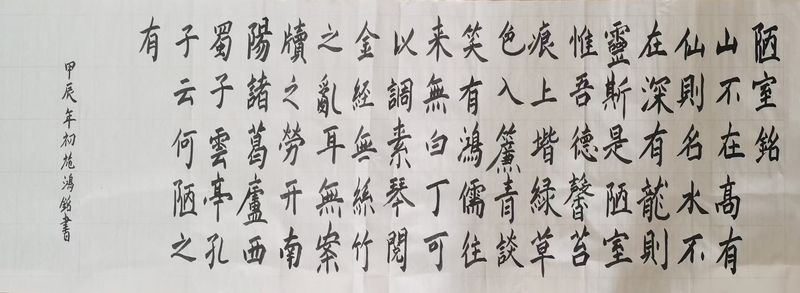 陋室銘
山不在高有
仙則名水不
在深有龍則
靈斯是陋室
惟吾德馨苔
痕上堦綠草
色入簾青談
笑有鴻儒往
来無白丁可
以調素琴閱
金經無絲竹
之亂耳無案
牘之勞开南
陽諸葛廬西
蜀子雲亭孔
子云何陋之
有
甲辰年初施鴻銘書